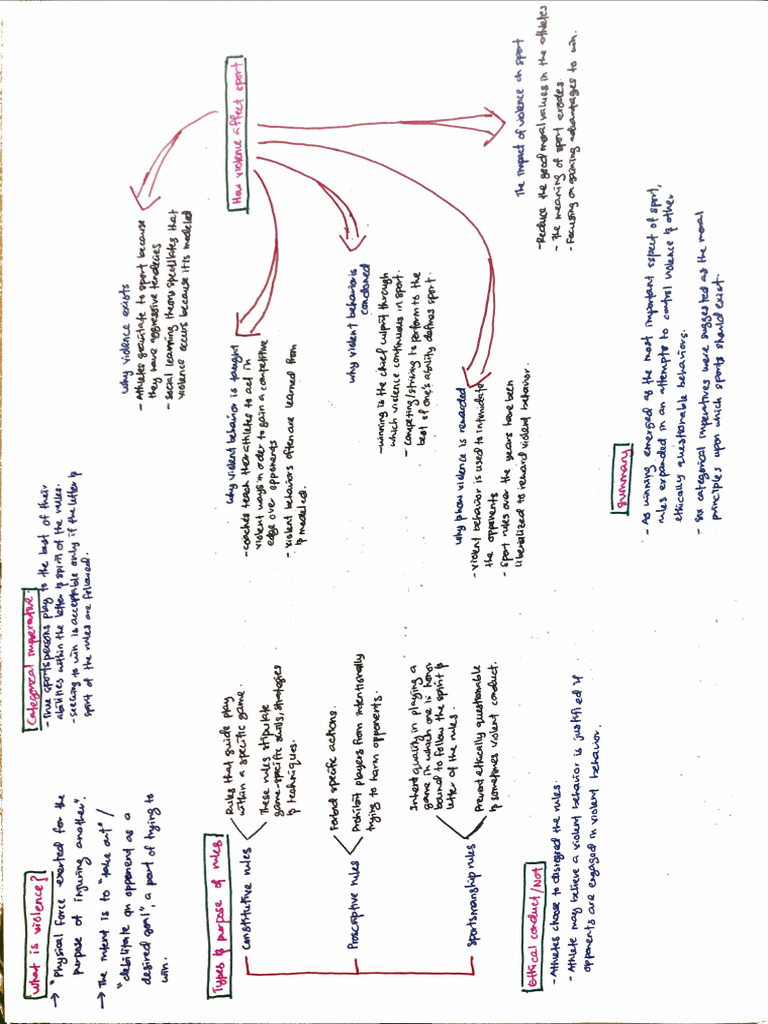 What is violence?
→ "Physical force exerted for the
purpose of injuring another".
→ The intent is to "take out" /
"debilitate an opponent as a
desired goal", a part of trying to
win.
Categorical imperative.
- True sportspersons play to the best of their
abilities within the letter & spirit of the rules.
- seeking to win is acceptable only if the letter &
spirit of the rules are followed.
Types & purpose of rules
Constitutive rules
Rules that guide play
within a specific game.
These rules stipulate
game-specific skills, strategies
& techniques.
Proscriptive rules
Forbid specific actions.
Prohibit players from intentionally
trying to harm opponents.
Sportsmanship rules
Inherent quality in playing a
game in which one is honor
bound to follow the spirit &
letter of the rules.
Prevent ethically questionable
& sometimes violent conduct.
Ethical conduct/Not
- Athletes choose to disregard the rules.
- Athlete may believe a violent behavior is justified if
opponents are engaged in violent behavior.
How violence affect sport
why violence exists
- Athletes gravitate to sport because
they have aggressive tendecies
- Social learning theory speculates that
violence occurs because it is modeled
why violent behavior is taught
- coaches teach their athletes to act in
violent ways in order to gain a competitive
edge over opponents
- violent behaviors often are learned from
& modeled.
why violent behavior is
condoned
- winning is the chief culprit through
which violence continuous in sport.
- competing/striving to perform to the
best of one's ability defines sport.
why & how violence is rewarded
- violent behavior is used to intimidate
the opponents
- Sport rules over the years have been
liberalized to reward violent behavior.
The impact of violence on sport
- Reduce the good moral values in the athletes
- The meaning of sport erodes.
- Focusing on gaining advantages to win.
Summary
- As winning emerged as the most important aspect of sport,
rules expanded in an attempts to control violence & other
ethically questionable behaviors.
- Six categorical imperatives were suggested as the moral
principles upon which sports should exist.